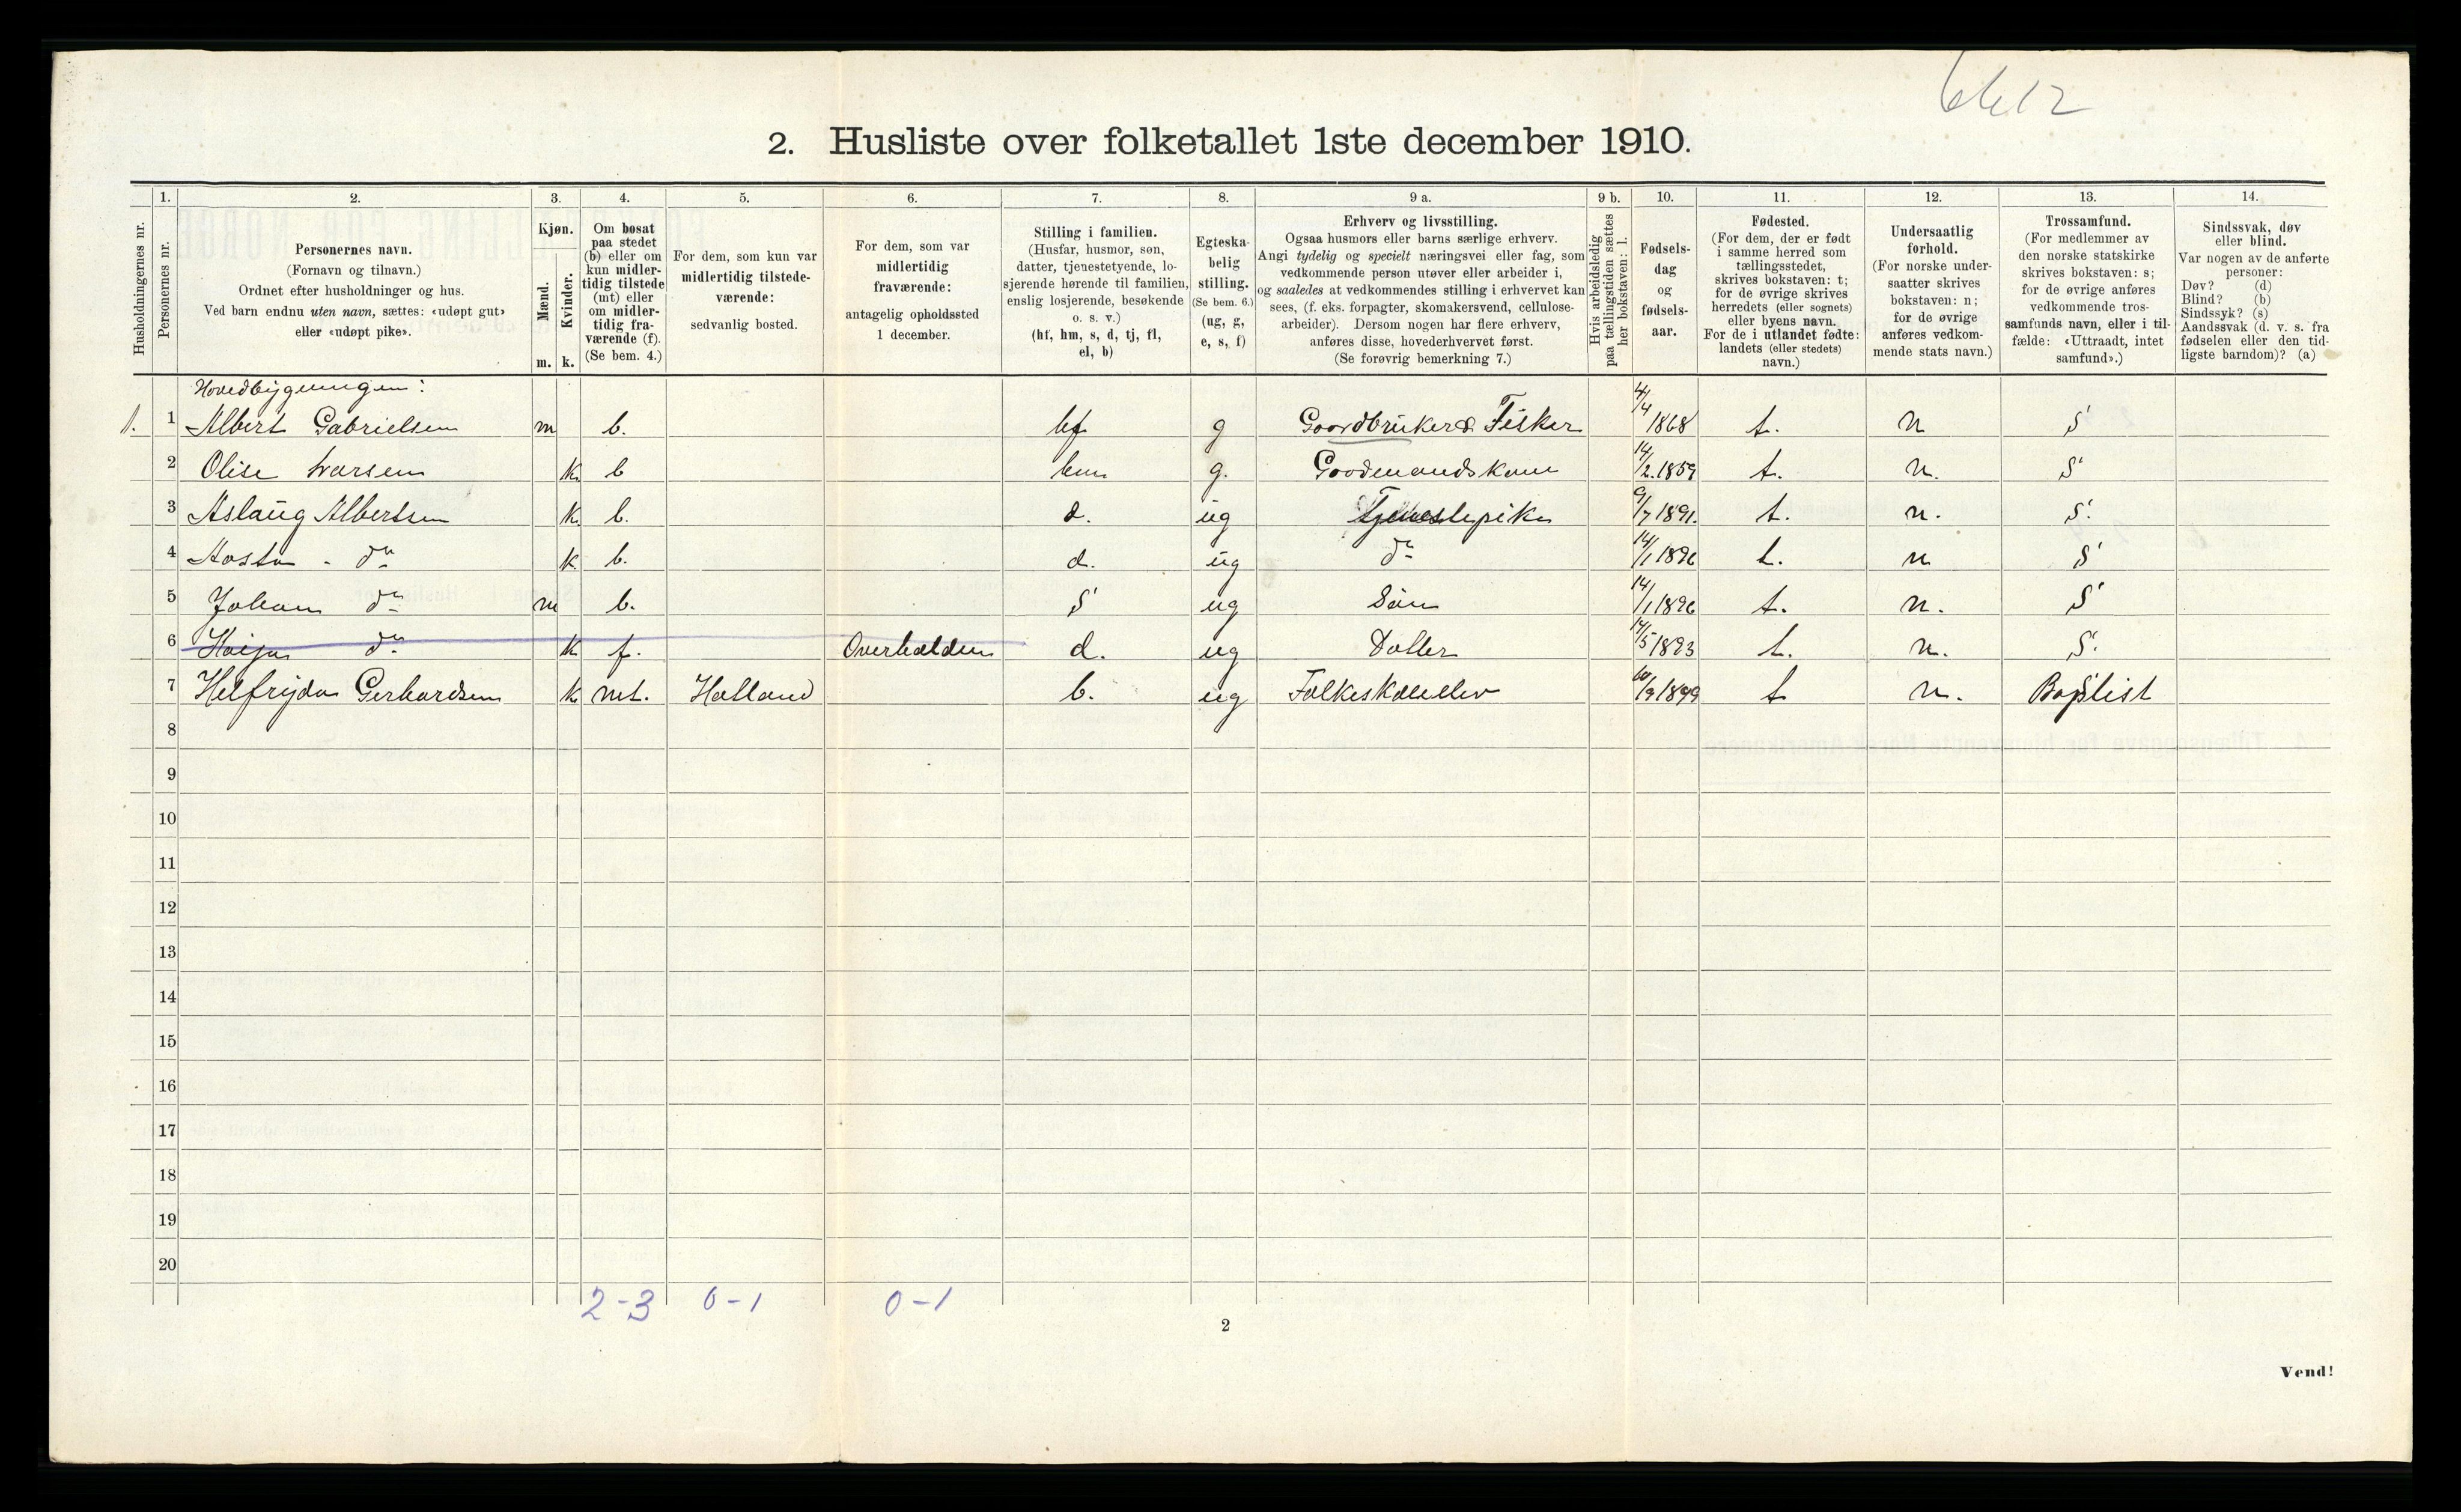 2. Husliste over folketallet 1ste december 1910.
1. 2. 3. 4. 5. 6. 7. 8. 9 a. 9 b. 10. 11. 12. 13. 14.
Husholdningernes nr.
Personernes nr.
Personernes navn.
(Fornavn og tilnavn.)
Ordnet efter husholdninger og hus.
Ved barn endnu uten navn, sættes: «udøpt gut»
eller «udøpt pike».
Kjøn.
Mænd.
Kvinder.
m. k.
Om bosat
paa stedet
(b) eller om
kun midler-
tidig tilstede
(mt) eller
om midler-
tidig fra-
værende (f).
(Se bem. 4.)
For dem, som kun var
midlertidig tilstede-
værende:
sedvanlig bosted.
For dem, som var
midlertidig
fraværende:
antagelig opholdssted
1 december.
Stilling i familien.
(Husfar, husmor, søn,
datter, tjenestetyende, lo-
sjerende hørende til familien,
enslig losjerende, besøkende
o. s. v.)
(hf, hm, s, d, tj, fl,
el, b)
Egteska-
belig
stilling.
(Se bem. 6.)
(ug, g,
e, s, f)
Erhverv og livsstilling.
Ogsaa husmors eller barns særlige erhverv.
Angi tydelig og specielt næringsvei eller fag, som
vedkommende person utøver eller arbeider i,
og saaledes at vedkommendes stilling i erhvervet kan
sees, (f. eks. forpagter, skomakersvend, cellulose-
arbeider). Dersom nogen har flere erhverv,
anføres disse, hovederhvervet først.
(Se forøvrig bemerkning 7.)
Hvis arbeidsledig
paa tællingstiden sættes
her bokstaven: l.
Fødsels-
dag
og
fødsels-
aar.
Fødested.
(For dem, der er født
i samme herred som
tællingsstedet,
skrives bokstaven: t;
for de øvrige skrives
herredets (eller sognets)
eller byens navn.
For de i utlandet fødte:
landets (eller stedets)
navn.)
Undersaatlig
forhold.
(For norske under-
saatter skrives
bokstaven: n;
for de øvrige
anføres vedkom-
mende stats navn.)
Trossamfund.
(For medlemmer av
den norske statskirke
skrives bokstaven: s;
for de øvrige anføres
vedkommende tros-
samfunds navn, eller i til-
fælde: «Uttraadt, intet
samfund».)
Sindssvak, døv
eller blind.
Var nogen av de anførte
personer:
Døv? (d)
Blind? (b)
Sindssyk? (s)
Aandssvak (d. v. s. fra
fødselen eller den tid-
ligste barndom)? (a)
Hovedbygningen:
1. 1 Albert Gabrielsen m b. hf g Gaardbruker & Fisker 4/4 1868 t. n S
2 Olise Ivarsen k b hm g. Gaardmandskone 14/2.1859 t. n. S
3 Aslaug Albertsen k b. d. ug Tjenestepike 9/7 1891. t. n. S.
4 Aasta - do k b. d. ug do 14/1 1896 t. n S
5 Johan do m b. S ug Søn 14/1 1896 t. n. S
6 do k f. Overhalden d. ug Datter 14/5 1893 t. n. S.
7 Helfrida Gerhardsen k mt. Halland b. ug Folkeskoleelev /9 1899 t n. Baptist
8
9
10
11
12
13
14
15
16
17
18
19
20
2-3 0-1 0-1
2
Vend!